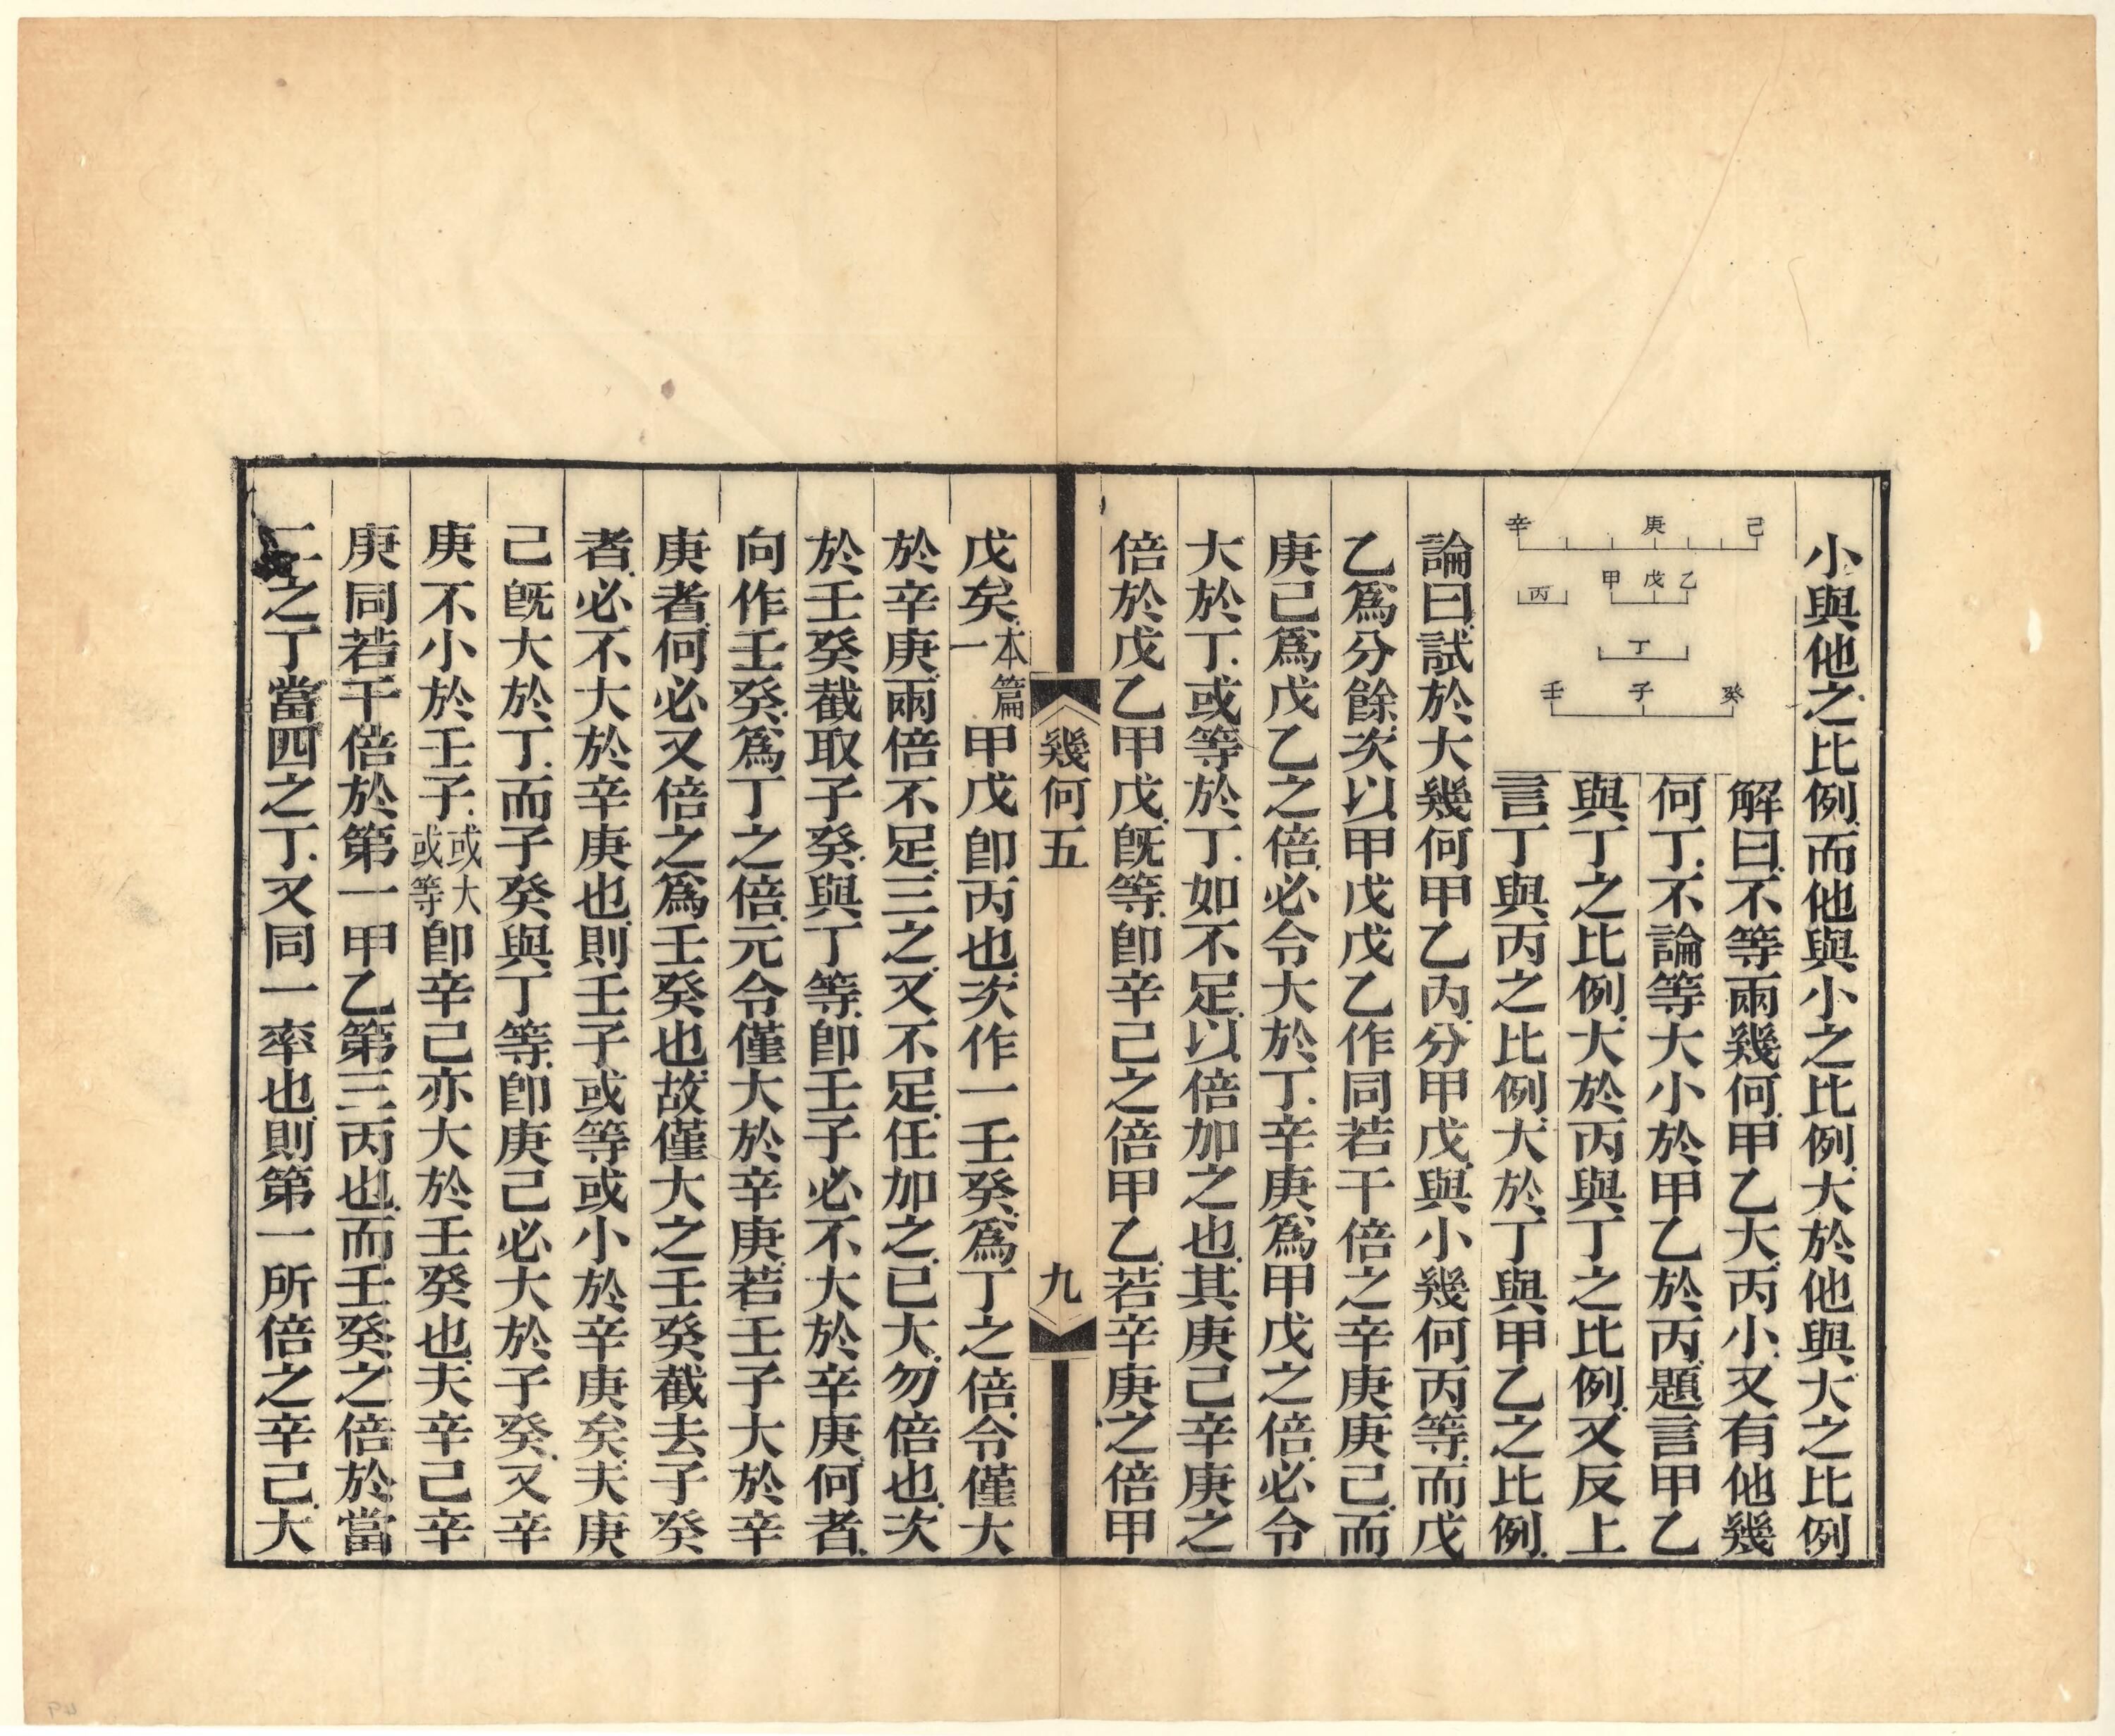 小與他之比例而他與小之比例大於他與大之比例
辛 庚 己
丙 甲 戊 乙
丁
壬 子 癸
解曰不等兩幾何甲乙大丙小又有他幾
何丁不論等大小於甲乙於丙題言甲乙
與丁之比例大於丙與丁之比例又反上
言丁與丙之比例大於丁與甲乙之比例
論曰試於大幾何甲乙內分甲戊與小幾何丙等而戊
乙爲分餘次以甲戊戊乙作同若干倍之辛庚庚己而
庚己爲戊乙之倍必令大於丁辛庚爲甲戊之倍必令
大於丁或等於丁如不足以倍加之也其庚己辛庚之
倍於戊乙甲戊旣等卽辛己之倍甲乙若辛庚之倍甲
幾何五
九
戊矣本篇一甲戊卽丙也次作一壬癸爲丁之倍令僅大
於辛庚兩倍不足三之又不足任加之已大勿倍也次
於壬癸截取子癸與丁等卽壬子必不大於辛庚何者
向作壬癸爲丁之倍元令僅大於辛庚若壬子大於辛
庚者何必又倍之爲壬癸也故僅大之壬癸截去子癸
者必不大於辛庚也則壬子或等或小於辛庚矣夫庚
己旣大於丁而子癸與丁等卽庚己必大於子癸又辛
庚不小於壬子或大或等卽辛己亦大於壬癸也夫辛己辛
庚同若干倍於第一甲乙第三丙也而壬癸之倍於當
二之丁當四之丁又同一率也則第一所倍之辛己大